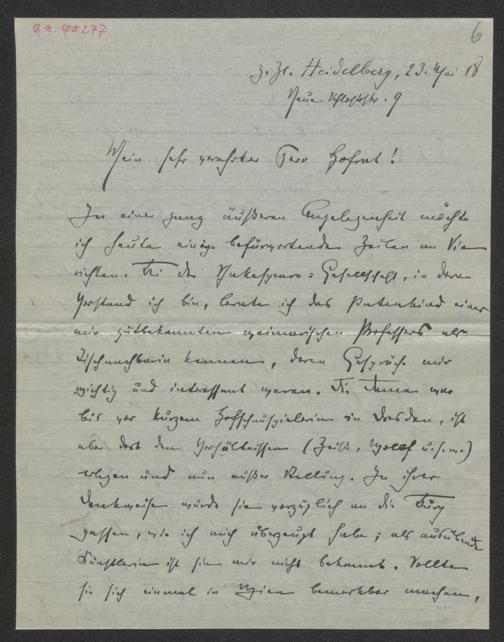 A.N. 45277
6
z. Zt. Heidelberg, 23. Mai 18
Neue Schloßstr. 9
Mein sehr verehrter Herr Hofrat!
In einer ganz äußeren Angelegenheit möchte
ich heute einige befürwortende Zeilen an Sie
richten. Bei der Shakespeare=Gesellschaft, in deren
Vorstand ich bin, lernte ich das Patenkind eines
mir gutbekannten weimarischen Professors als
Tischnachbarin kennen, deren Gespräche mir
wichtig und interessant waren. Die Dame war
bis vor kurzem Hofschauspielerin in Dresden, ist
aber dort den Verhältnissen (Zeiß, Wolff u.s.w.)
erlegen und nun außer Stellung. In ihrer
Denkweise würde sie vorzüglich an die Burg
passen, wie ich mich überzeugt habe; als ausübende
Künstlerin ist sie mir nicht bekannt. Sollte
sie sich einmal in Wien bemerkbar machen,